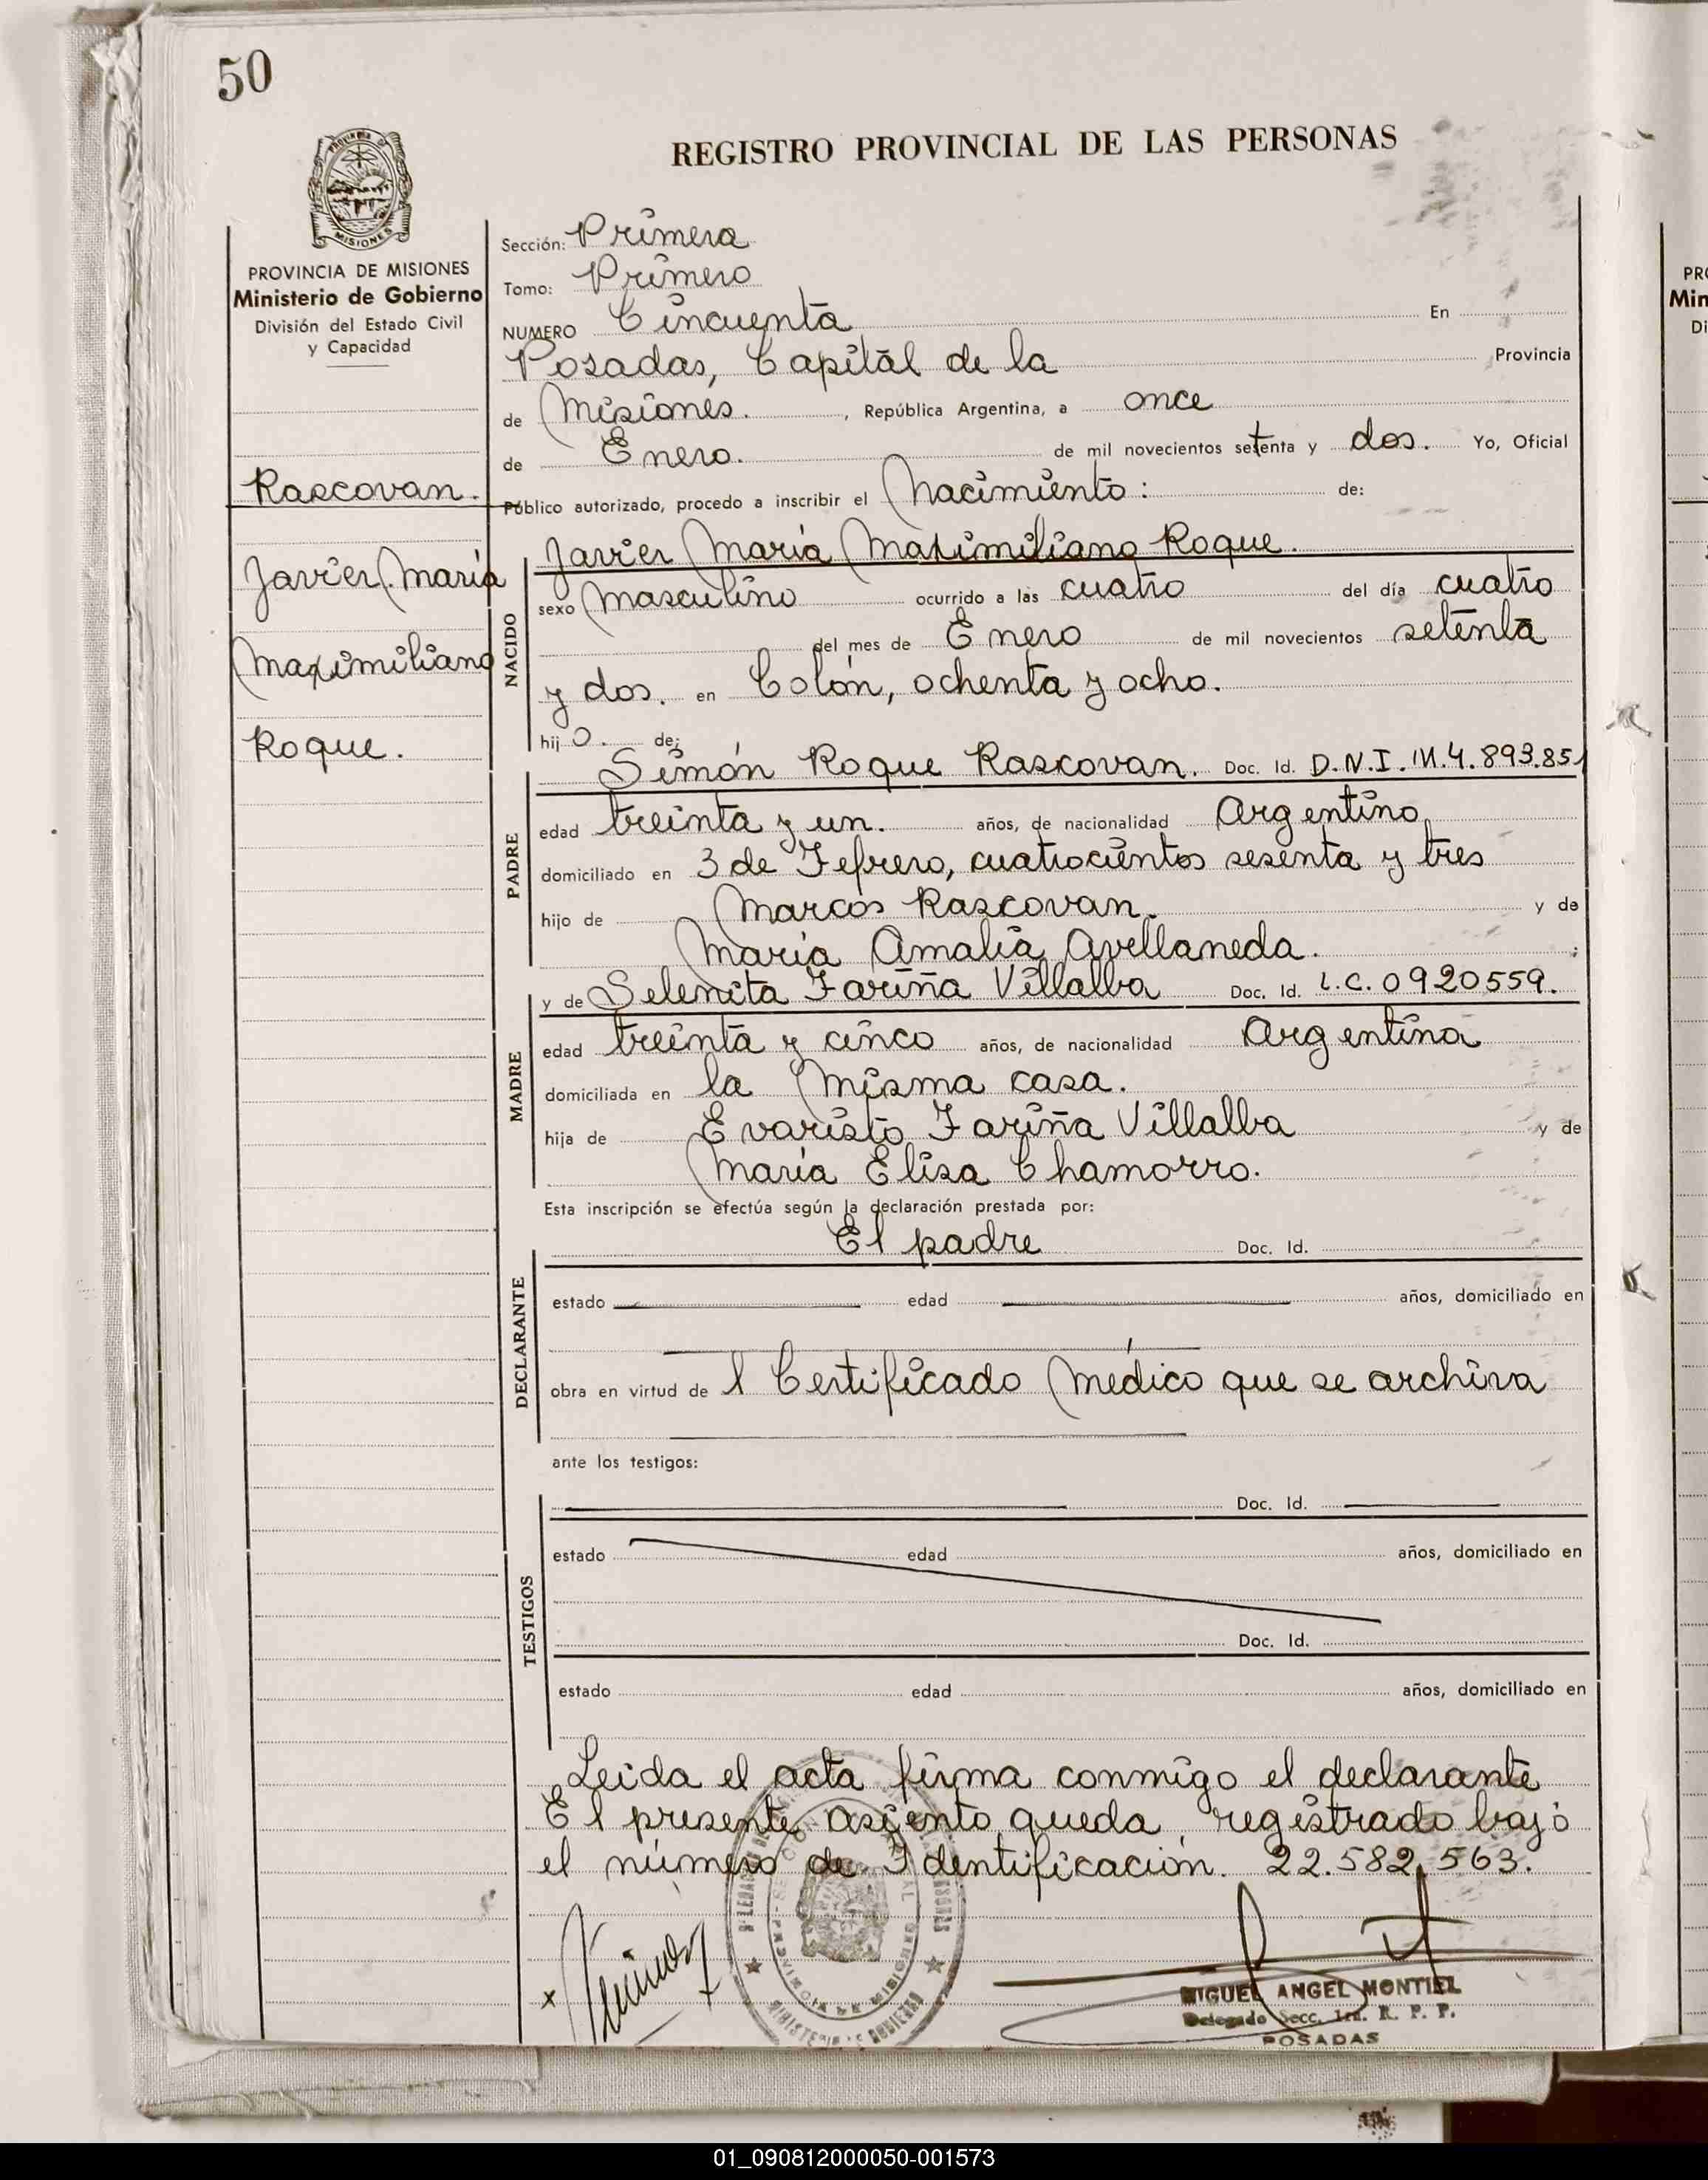 50
REGISTRO PROVINCIAL DE LAS PERSONAS
PROVINCIA
MISIONES
PROVINCIA DE MISIONES
Ministerio de Gobierno
División del Estado Civil
y Capacidad
Rascovan.
Javier María
Maximiliano
Roque.
Sección: Primera
Tomo: Primero
NUMERO Cincuenta En
Posadas, Capital de la Provincia
de Misiones. , República Argentina, a once
de Enero. de mil novecientos setenta y dos. Yo, Oficial
Público autorizado, procedo a inscribir el Nacimiento: de:
Javier María Maximiliano Roque.
NACIDO
sexo Masculino ocurrido a las cuatro del día cuatro
del mes de Enero de mil novecientos setenta
y dos. en Colón, ochenta y ocho.
hijo. de:
PADRE
Simón Roque Rascovan. Doc. Id. D.N.I. M.4.893.851
edad treinta y un. años, de nacionalidad Argentino,
domiciliado en 3 de Febrero, cuatrocientos sesenta y tres
hijo de Marcos Rascovan. y de
María Amalia Avellaneda. ;
MADRE
y de Selenita Fariña Villalba Doc. Id. L.C. 0920559.
edad treinta y cinco años, de nacionalidad Argentina
domiciliada en la misma casa.
hija de Evaristo Fariña Villalba y de
María Elisa Chamorro.
Esta inscripción se efectúa según la declaración prestada por:
DECLARANTE
El padre Doc. Id.
estado edad años, domiciliado en
obra en virtud de l Certificado Médico que se archiva
ante los testigos:
TESTIGOS
Doc. Id.
estado edad años, domiciliado en
Doc. Id.
estado edad años, domiciliado en
Leida el acta firma conmigo el declarante
El presente asiento queda registrado bajo
el número de Identificación. 22.582.563.
x
PROVINCIA DE MISIONES
MINISTERIO DE GOBIERNO
MIGUEL ANGEL MONTIEL
Delegado Secc. 1ra. R. P. P.
POSADAS
PRO
Min
Di
01_090812000050-001573